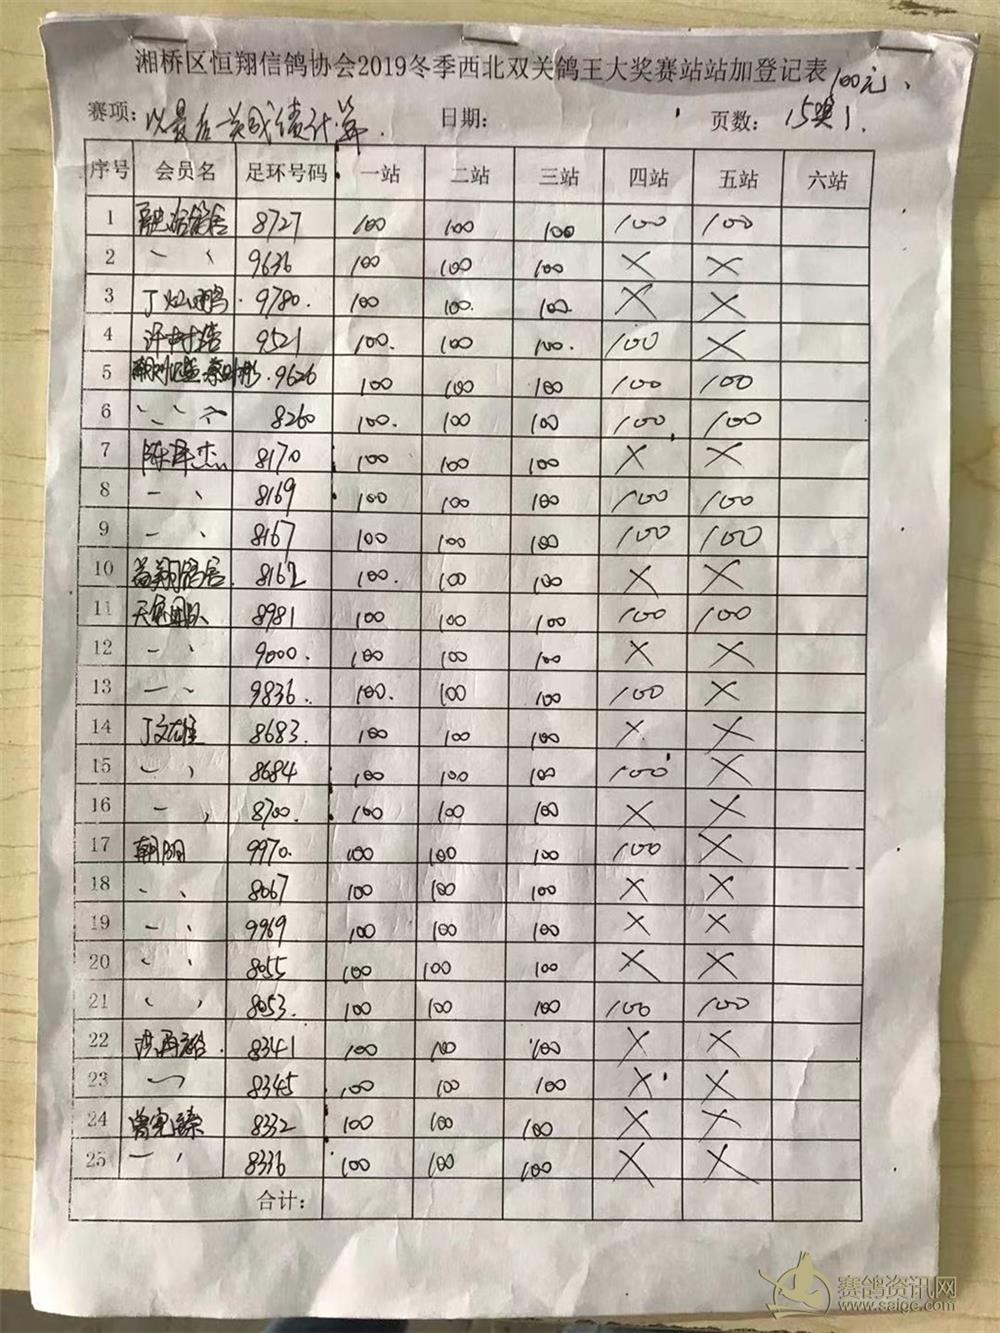 湘桥区恒翔信鸽协会2019冬季西北双关鸽王大奖赛站站加登记表 100元、
赛项: 以最后一关成绩计算. 日期: 页数: 15奖1
序号 会员名 足环号码 一站 二站 三站 四站 五站 六站
1 鸽舍 8727 100 100 100 100 100
2 〃 9636 100 100 100 × ×
3 丁灿鹏. 9780. 100 100. 100. × ×
4 许树 9521 100. 100 100. 100 ×
5 9626 100 100 100 100 100
6 〃 8260 100. 100 100 100 100
7 陈泽杰 8170 100 100 100 × ×
8 〃 8169 100 100 100 100 100
9 〃 8167 100 100 100 100 100
10 翔鸽舍. 8162 100. 100 100 × ×
11 团队 8981 100 100 100 100 100
12 〃 9000. 100 100 100 × ×
13 〃 9836. 100. 100 100 100 ×
14 丁文雄 8683. 100 100 100 × ×
15 〃 8684 100 100 100 100 ×
16 〃 8700. 100 100 100 × ×
17 朝阳 9970. 100 100 100 100 ×
18 〃 8067 100 100 100 × ×
19 〃 9969 100 100 100 × ×
20 〃 8055 100 100 100 × ×
21 〃 8053. 100 100 100 100 100
22 8341 100 100 100 × ×
23 〃 8345 100 100 100 × ×
24 曾宪臻 8332 100 100 100 × ×
25 〃 8336 100 100 100 × ×
合计:
赛鸽资讯网
www.saige.com